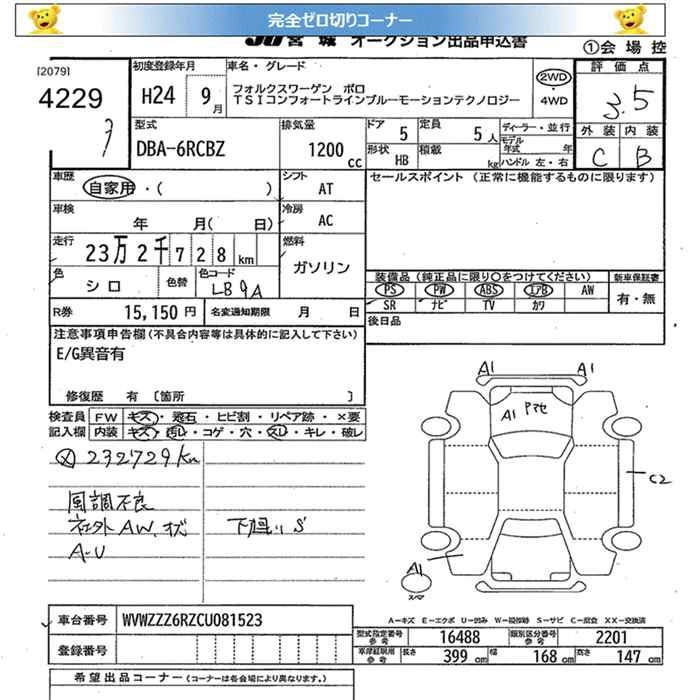 完全ゼロ切りコーナー
JU宮城 オークション出品申込書
①会場控
[2079]
4229
初度登録年月
H24 9月
車名・グレード
フォルクスワーゲン ポロ
TSIコンフォートラインブルーモーションテクノロジー
2WD
・
4WD
評価点
3.5
外装 内装
C B
型式
DBA-6RCBZ
排気量
1200 cc
ドア 5
定員 5人
形状 HB
積載 kg
ディーラー・並行
モデル年式 年
ハンドル 左・右
車歴
自家用・( )
シフト
AT
セールスポイント (正常に機能するものに限ります)
車検
年 月( 日)
冷房
AC
走行
23万2千728km
燃料
ガソリン
色
シロ
色替
色コード
LB9A
装備品 (純正品に限り○をつけてください)
新車保証書
PS PW ABS エアB AW
SR ナビ TV カワ
有・無
R券
15,150円
名変通知期限 月 日
後日品
注意事項申告欄(不具合内容等は具体的に記入して下さい)
E/G異音有
修復歴 有 [箇所 ]
検査員 FW キズ・飛石・ヒビ割・リペア跡・×要
記入欄 内装 キズ・汚れ・コゲ・穴・スレ・キレ・破レ
ⓧ 232729km
風調不良
社外AW、キズ
A-U
下廻りS
A1 A1
A1
C2
A1
スペア
A-キズ E-エクボ U-凹み W-補修跡 S-サビ C-腐食 XX-交換済
車台番号
WVWZZZ6RZCU081523
登録番号
型式指定番号 参考 16488
類別区分番号 参考 2201
長さ 399cm
幅 168cm
高さ 147cm
希望出品コーナー (コーナーは各会場により異なります。)